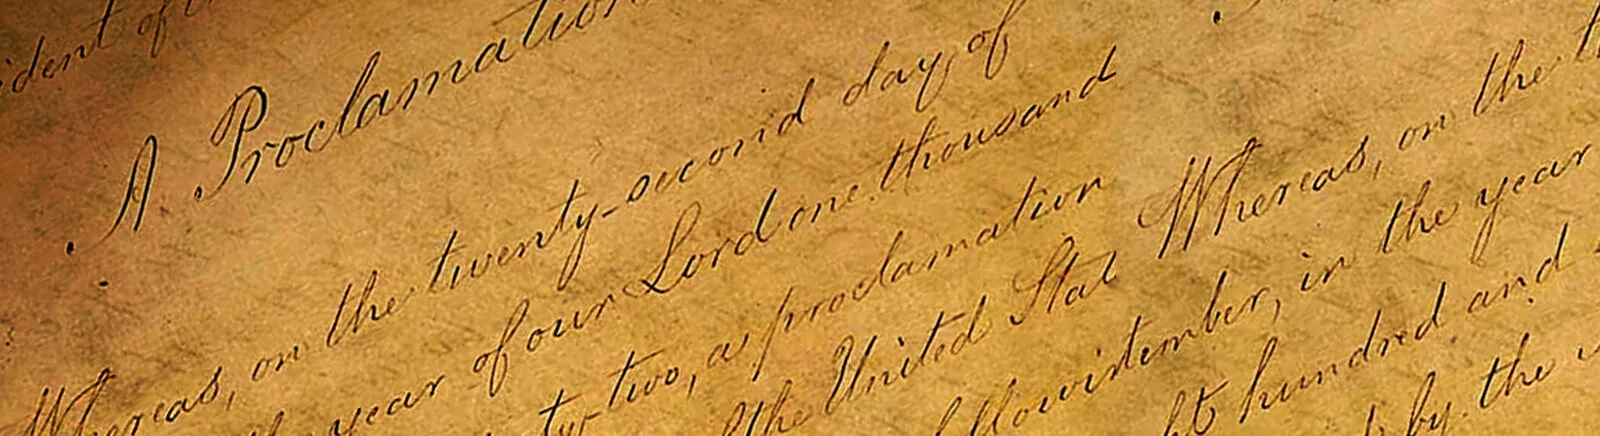 ident of
A Proclamation
Whereas, on the twenty-second day of
year of our Lord one thousand
ty two, a proclamation
the United Stat
Whereas, on the
llowistember, in the year
ht hundred and
by the